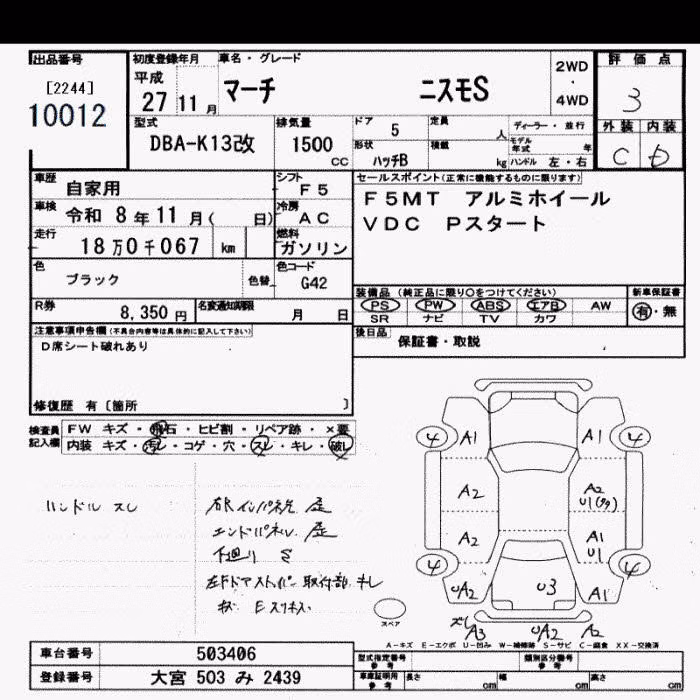 出品番号
[2244]
10012
初度登録年月
平成
27 11 月
車名・グレード
マーチ ニスモS
2WD
・
4WD
評価点
3
外装 内装
C D
型式
DBA-K13改
排気量
1500
CC
ドア
5
形状
ハッチB
定員
人
積載
kg
ディーラー・並行
モデル年式 年
ハンドル 左・右
車歴
自家用
シフト
F5
車検
令和 8年 11月( 日)
冷房
AC
走行
18万0千067 km
燃料
ガソリン
色
ブラック
色替
色コード
G42
R券
8,350 円
名変通知期限
月 日
セールスポイント(正常に機能するものに限ります)
F5MT アルミホイール
VDC Pスタート
装備品(純正品に限り○をつけてください)
PS PW ABS エアB AW
SR ナビ TV カワ
新車保証書
有・無
後日品
保証書・取説
注意事項申告欄(不具合内容等は具体的に記入して下さい)
D席シート破れあり
修復歴 有〔箇所 〕
検査員
記入欄
FW キズ・飛石・ヒビ割・リペア跡・×要
内装 キズ・汚レ・コゲ・穴・スレ・キレ・破レ
ハンドル スレ
右Rインパネ先 歪
エンドパネル 歪
下廻り S
取付部 キレ
4 A1 A1 4
A2 A2
U1
A2 A1
U1
4 4
UA2 U3 A1
A3 UA2 A2
スペア
A-キズ E-エクボ U-凹み W-補修跡 S-サビ C-腐食 XX-交換済
車台番号
503406
登録番号
大宮 503 み 2439
型式指定番号
参考
類別区分番号
参考
車庫証明用
参考
長さ cm 幅 cm 高さ cm